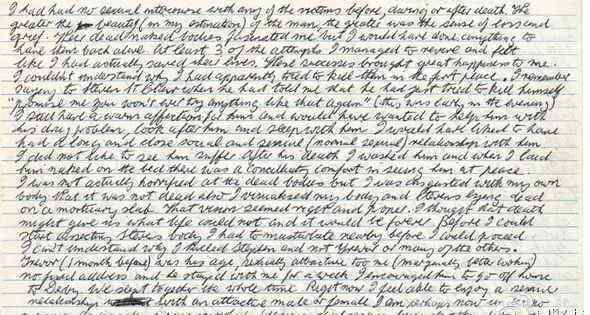 I had had no sexual intercourse with any of the victims before, during or after death. The
greater the beauty (in my estimation) of the man, the greater was the sense of loss and
grief. Their dead naked bodies fascinated me but I would have done anything to
have them back alive. At least 3 of the attempts I managed to revive and felt
like I had actually saved their lives. These successes brought great happiness to me.
I couldn't understand why I had apparently tried to kill them in the first place. I remember
saying to Stephen Sinclair when he had told me that he had just tried to kill himself
"promise me you won't ever try anything like that again" (this was early in the evening)
I still have a warm affection for him and would have wanted to help him with
his drug problem, look after him and sleep with him. I would have liked to have
had a long and close social and sexual (normal sexual) relationship with him
I did not like to see him suffer. After his death I washed him and when I laid
him naked on the bed there was a conciliatory comfort in seeing him at peace.
I was not actually horrified at the dead bodies but I was disgusted with my own
body that it was not dead also. I visualised my body and Stevens lying dead
on a mortuary slab. That vision seemed right and proper. I thought that death
might give us what life could not and it would be forever. Before I could
start dissecting Stevens body I had to masturbate nearby before I could proceed
I can't understand why I picked Stephen and not Trevor or many of the others.
Trevor (1 month before) was his age, sexually attractive too me (marginally better looking)
no fixed address and he stayed with me for a week. I encouraged him to go off home
to Derby. We slept together the whole time. Right now I feel able to enjoy a sexual
relationship with an attractive male or female. I am perhaps now no